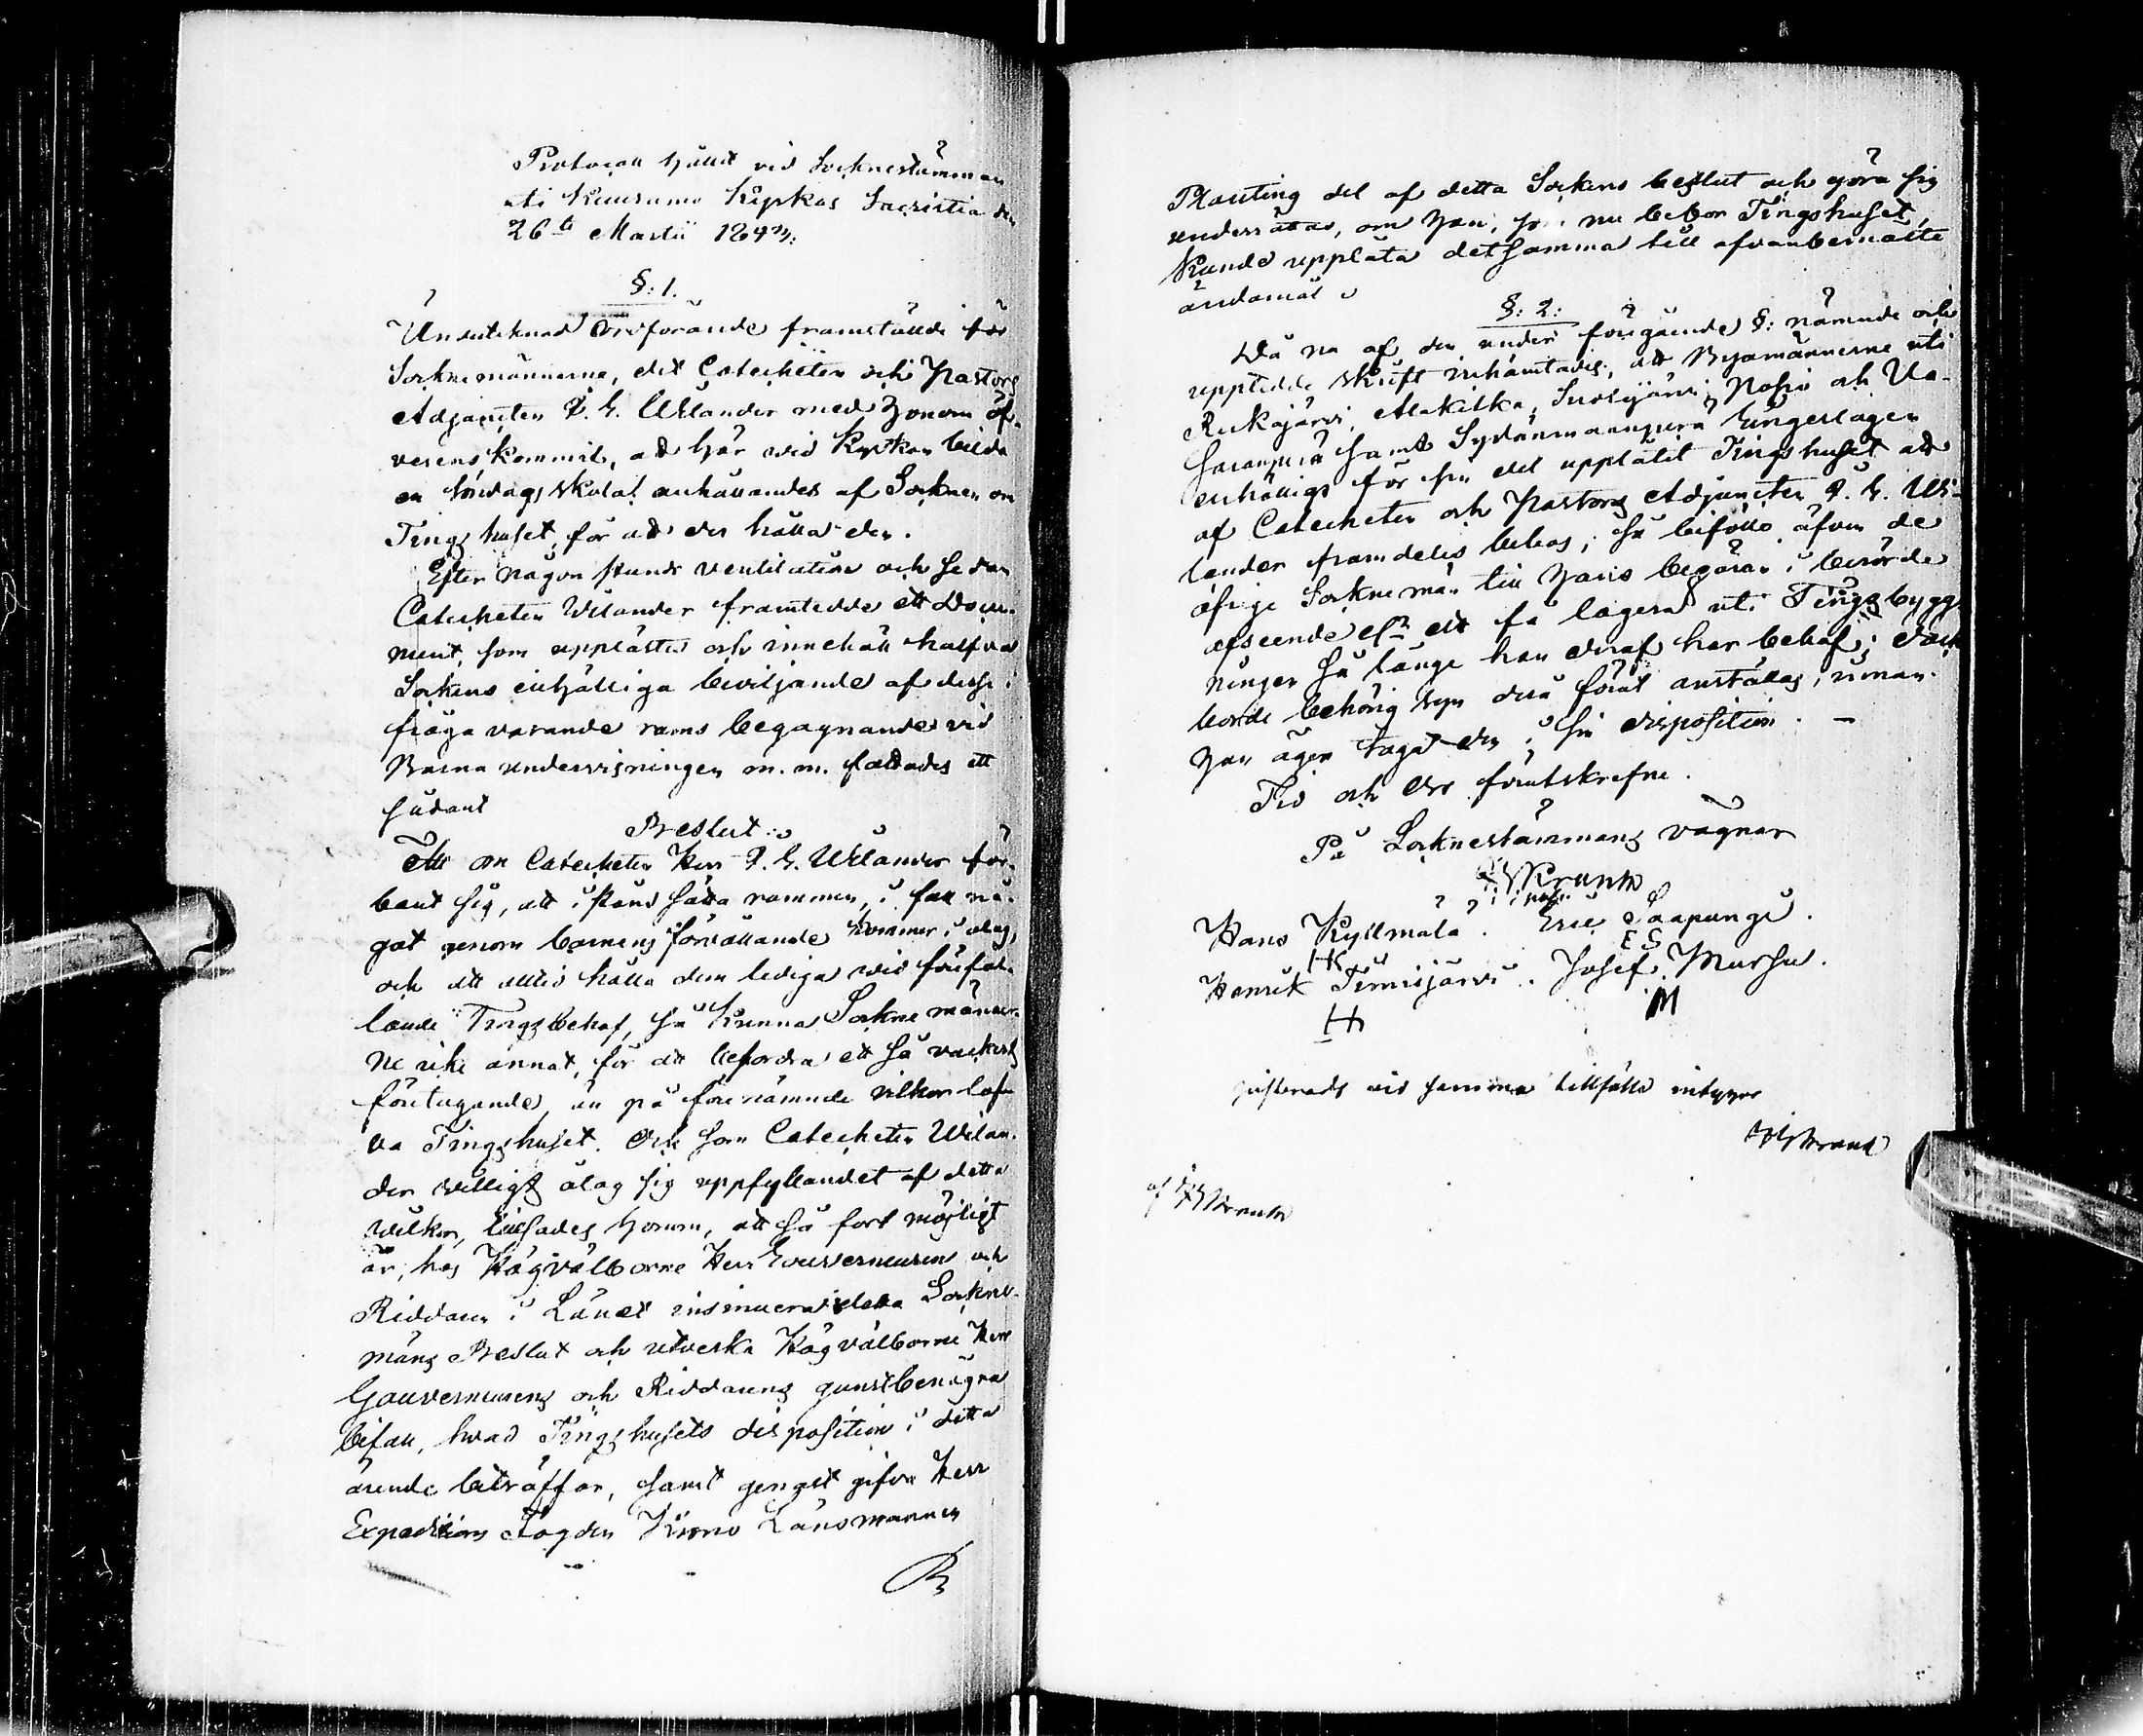 Protocoll hållit vid Socknestämman
uti Kuusamo Kyrkas Sacristia den
26te Martii 1843.
§: 1.
Undertecknad Ordförande framställde för
Socknemännerne, det Catecheten och Pastors
Adjuncten P. G. Ullander med honom öf-
verens kommit, att här vid Kyrkan bilda
en söndags skola anhållandes af Socknen om
Tingshuset, för att der hålla den.
Efter någon stunds ventilation och sedan
Catecheten Ullander framtedde ett Docu-
ment, som upplästes och innehöll halfva
Sockens enhälliga beviljande af desse i
fråga varande rums begagnande vid
Barna undervisningen m. m. fattades ett
sådant
Beslut:
Att om Catecheten Herr P. G. Ullander för-
band sig, att i stånd sätta rummen, i fall nå-
got genom barnens förvållande kommer i olag,
och att alltid hålla dem lediga vid förefal-
lande Tingsbehof, så kunna Socknemänner-
ne icke annat, för att befordra ett så vackert
företagande, än på förenämnde vilkor lof-
va Tingshuset. Och som Catecheten Ullan-
der villigt åtog sig uppfyllandet af detta
vilkor, hos Högvälborne Herr Gouverneuren och
Riddaren i Länet insinuera detta Sockne-
mäns Beslut och utverka Högvälborne Herr
Gouverneurens och Riddarens gunstbenägna
bifall, hvad Tingshusets disposition i detta
ärende beträffar, samt genast gifva Herr
Expeditions Fogden Krono Länsmannen
Planting del af detta Sockens beslut och göra sig
underrättad, om han, som nu bebor Tingshuset,
kunde upplåta detsamma till ofvanbemälte
ändamål.
§: 2:
Då nu af den under föregående §: nämnde och
upptedde skrift inhämtades, att Byamännerne uti
Rukajärvi, Alakitka, Suolijärvi, Posio och Va-
saraperä samt Sydänmaanperä
enhälligt för sin del upplåtit Tingshuset att
af Catecheten och Pastors Adjuncten P. G. Ul-
lander framdeles bebos; så biföllo äfven de
öfrige Socknemän till hans begäran i berörde
afseende att få logera uti Tingsbygg-
ningen så länge han deraf har behof; dock
borde behörig syn derå förut anställas, innan
han äger taga den i sin disposition. —
Tid och Ort förutskrefne.
På Socknestämmans vägnar
Hans Kyllmälä. Eric Saapungi.
HK ES
Henrik Tinnisjärvi. Josef Mursu.
H M
Justerads vid samma tillfälle intygar